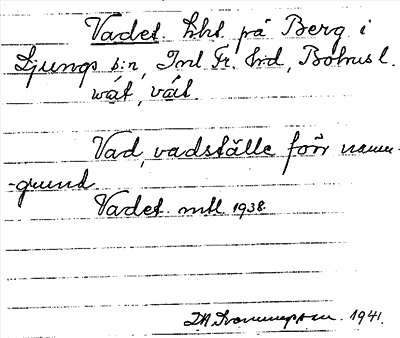 Vadet. lht på Berg i
Ljungs s:n, Inl Fr. hd, Bohusl.
wat, våt
Vad, vadställe förr namn-
-grund
Vadet. mtl 1938.
1941.